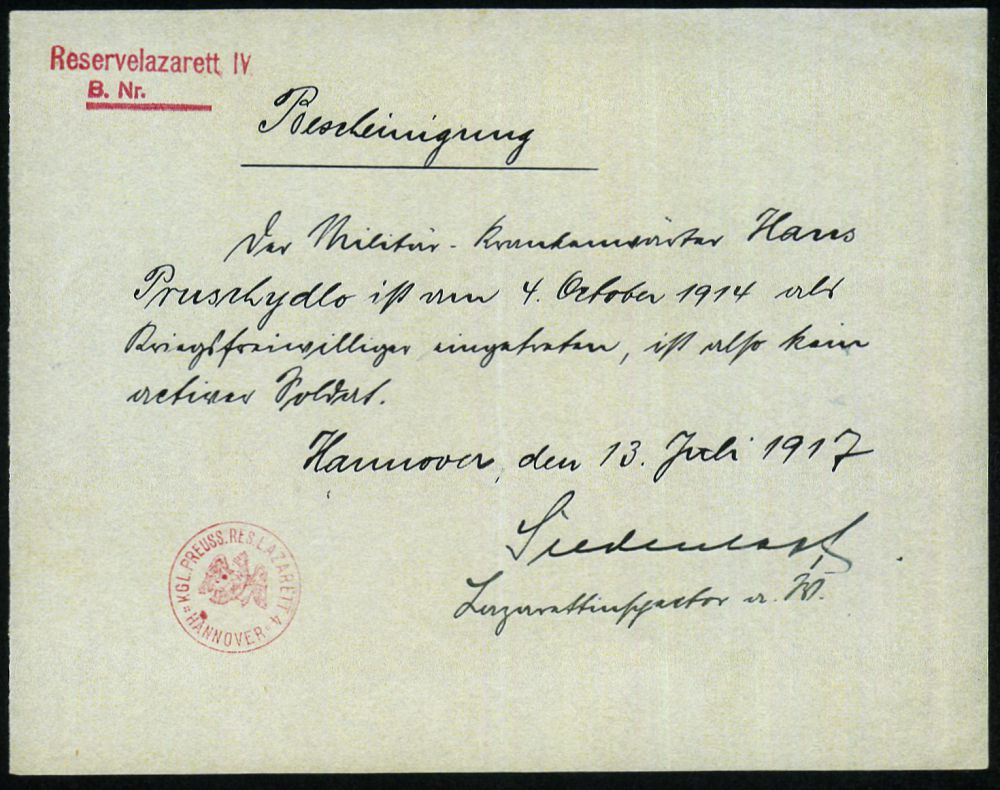 Reservelazarett IV
B. Nr.
Bescheinigung
Der Militär-Krankenwärter Hans
Pruschydlo ist am 4. October 1914 als
Kriegsfreiwilliger eingetreten, ist also kein
activer Soldat.
Hannover, den 13. Juli 1917
Siedentopf
Lazarettinspector a. W.
KGL. PREUSS. RES. LAZARETT 4
HANNOVER